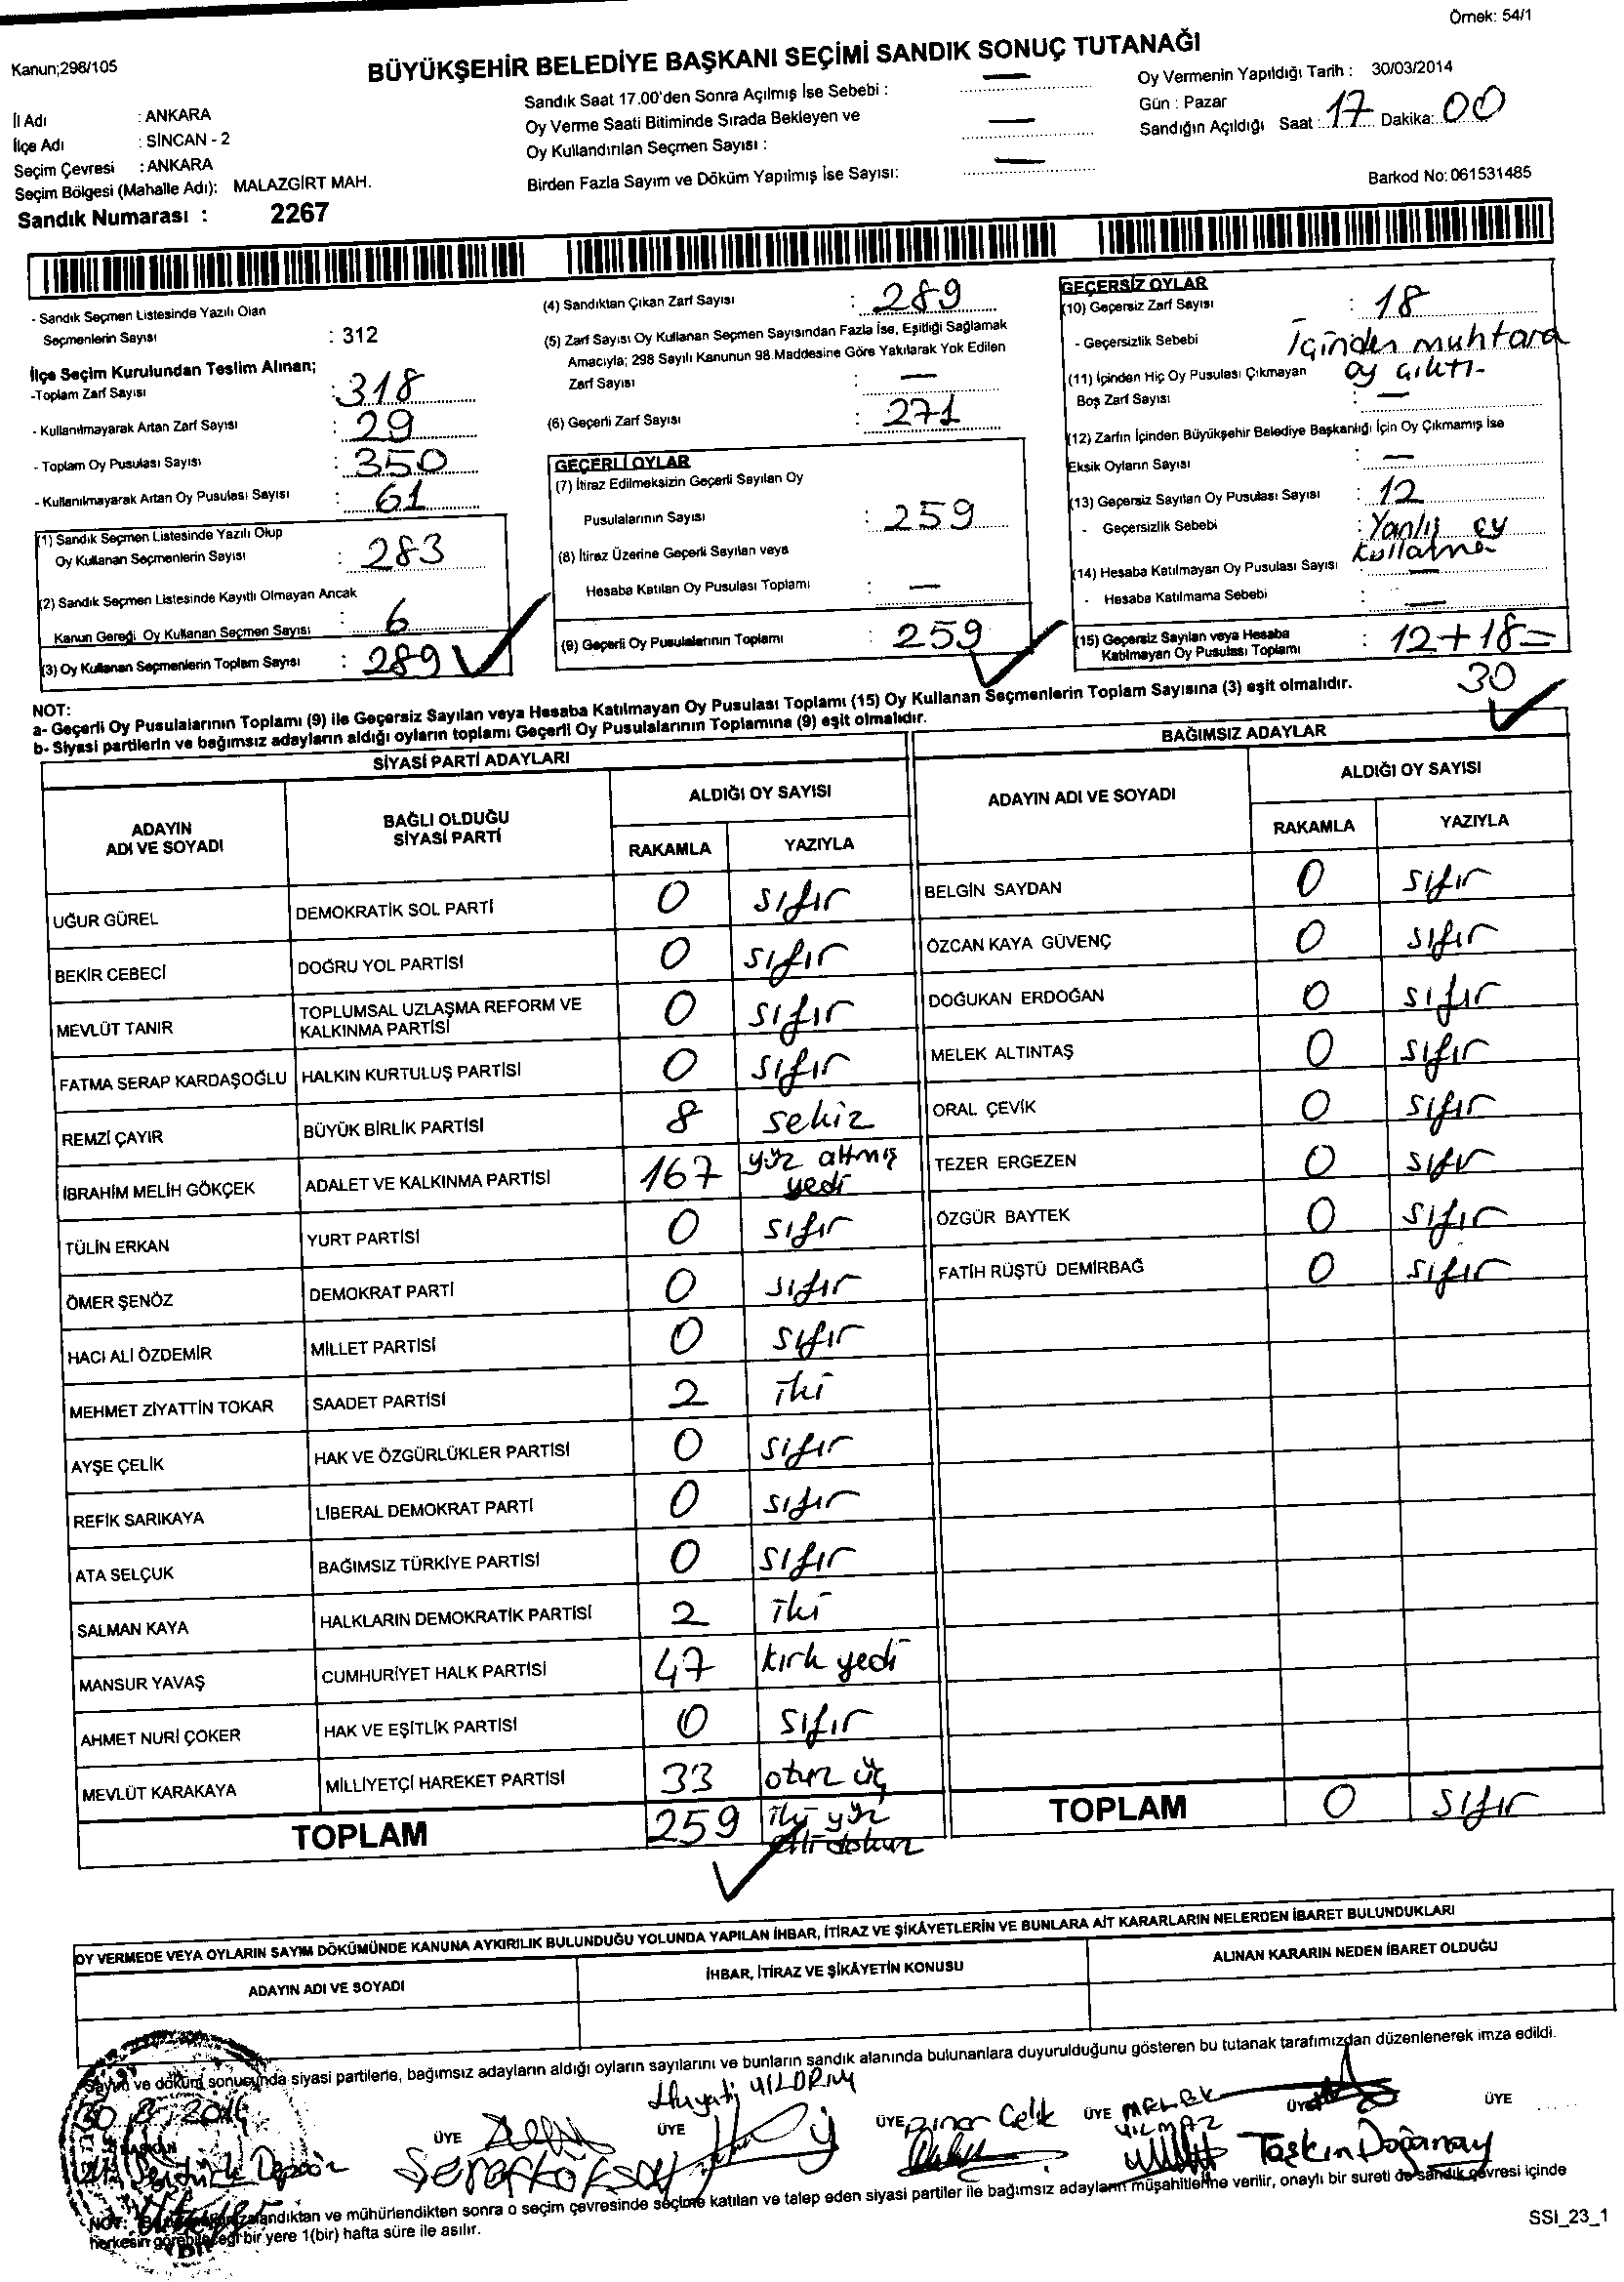 Örnek: 54/1
Kanun;298/105
BÜYÜKŞEHİR BELEDİYE BAŞKANI SEÇİMİ SANDIK SONUÇ TUTANAĞI
İl Adı : ANKARA
İlçe Adı : SİNCAN - 2
Seçim Çevresi : ANKARA
Seçim Bölgesi (Mahalle Adı): MALAZGİRT MAH.
Sandık Numarası : 2267
Sandık Saat 17.00'den Sonra Açılmış İse Sebebi : —
Oy Verme Saati Bitiminde Sırada Bekleyen ve
Oy Kullandırılan Seçmen Sayısı : —
Birden Fazla Sayım ve Döküm Yapılmış İse Sayısı: —
Oy Vermenin Yapıldığı Tarih : 30/03/2014
Gün : Pazar
Sandığın Açıldığı Saat : 17 Dakika: 00
Barkod No: 061531485
- Sandık Seçmen Listesinde Yazılı Olan
Seçmenlerin Sayısı : 312
İlçe Seçim Kurulundan Teslim Alınan;
-Toplam Zarf Sayısı : 318
- Kullanılmayarak Artan Zarf Sayısı : 29
- Toplam Oy Pusulası Sayısı : 350
- Kullanılmayarak Artan Oy Pusulası Sayısı : 61
(1) Sandık Seçmen Listesinde Yazılı Olup
Oy Kullanan Seçmenlerin Sayısı : 283
(2) Sandık Seçmen Listesinde Kayıtlı Olmayan Ancak
Kanun Gereği Oy Kullanan Seçmen Sayısı : 6
(3) Oy Kullanan Seçmenlerin Toplam Sayısı : 289
(4) Sandıktan Çıkan Zarf Sayısı : 289
(5) Zarf Sayısı Oy Kullanan Seçmen Sayısından Fazla İse, Eşitliği Sağlamak
Amacıyla; 298 Sayılı Kanunun 98.Maddesine Göre Yakılarak Yok Edilen
Zarf Sayısı : —
(6) Geçerli Zarf Sayısı : 271
GEÇERLİ OYLAR
(7) İtiraz Edilmeksizin Geçerli Sayılan Oy
Pusulalarının Sayısı : 259
(8) İtiraz Üzerine Geçerli Sayılan veya
Hesaba Katılan Oy Pusulası Toplamı : —
(9) Geçerli Oy Pusulalarının Toplamı : 259
GEÇERSİZ OYLAR
(10) Geçersiz Zarf Sayısı : 18
- Geçersizlik Sebebi : İçinden muhtara
oy çıktı-
(11) İçinden Hiç Oy Pusulası Çıkmayan
Boş Zarf Sayısı : —
(12) Zarfın İçinden Büyükşehir Belediye Başkanlığı İçin Oy Çıkmamış İse
Eksik Oyların Sayısı : —
(13) Geçersiz Sayılan Oy Pusulası Sayısı : 12
- Geçersizlik Sebebi : Yanlış oy
kullanma
(14) Hesaba Katılmayan Oy Pusulası Sayısı : —
- Hesaba Katılmama Sebebi : —
(15) Geçersiz Sayılan veya Hesaba
Katılmayan Oy Pusulası Toplamı : 12+18=
30
NOT:
a- Geçerli Oy Pusulalarının Toplamı (9) ile Geçersiz Sayılan veya Hesaba Katılmayan Oy Pusulası Toplamı (15) Oy Kullanan Seçmenlerin Toplam Sayısına (3) eşit olmalıdır.
b- Siyasi partilerin ve bağımsız adayların aldığı oyların toplamı Geçerli Oy Pusulalarının Toplamına (9) eşit olmalıdır.
SİYASİ PARTİ ADAYLARI
ADAYIN ADI VE SOYADI BAĞLI OLDUĞU SİYASİ PARTİ ALDIĞI OY SAYISI
RAKAMLA YAZIYLA
UĞUR GÜREL DEMOKRATİK SOL PARTİ 0 sıfır
BEKİR CEBECİ DOĞRU YOL PARTİSİ 0 sıfır
MEVLÜT TANIR TOPLUMSAL UZLAŞMA REFORM VE KALKINMA PARTİSİ 0 sıfır
FATMA SERAP KARDAŞOĞLU HALKIN KURTULUŞ PARTİSİ 0 sıfır
REMZİ ÇAYIR BÜYÜK BİRLİK PARTİSİ 8 sekiz
İBRAHİM MELİH GÖKÇEK ADALET VE KALKINMA PARTİSİ 167 yüz altmış yedi
TÜLİN ERKAN YURT PARTİSİ 0 sıfır
ÖMER ŞENÖZ DEMOKRAT PARTİ 0 sıfır
HACI ALİ ÖZDEMİR MİLLET PARTİSİ 0 sıfır
MEHMET ZİYATTİN TOKAR SAADET PARTİSİ 2 iki
AYŞE ÇELİK HAK VE ÖZGÜRLÜKLER PARTİSİ 0 sıfır
REFİK SARIKAYA LİBERAL DEMOKRAT PARTİ 0 sıfır
ATA SELÇUK BAĞIMSIZ TÜRKİYE PARTİSİ 0 sıfır
SALMAN KAYA HALKLARIN DEMOKRATİK PARTİSİ 2 iki
MANSUR YAVAŞ CUMHURİYET HALK PARTİSİ 47 kırk yedi
AHMET NURİ ÇOKER HAK VE EŞİTLİK PARTİSİ 0 sıfır
MEVLÜT KARAKAYA MİLLİYETÇİ HAREKET PARTİSİ 33 otuz üç
TOPLAM 259 iki yüz elli dokuz
BAĞIMSIZ ADAYLAR
ADAYIN ADI VE SOYADI ALDIĞI OY SAYISI
RAKAMLA YAZIYLA
BELGİN SAYDAN 0 sıfır
ÖZCAN KAYA GÜVENÇ 0 sıfır
DOĞUKAN ERDOĞAN 0 sıfır
MELEK ALTINTAŞ 0 sıfır
ORAL ÇEVİK 0 sıfır
TEZER ERGEZEN 0 sıfır
ÖZGÜR BAYTEK 0 sıfır
FATİH RÜŞTÜ DEMİRBAĞ 0 sıfır
TOPLAM 0 sıfır
OY VERMEDE VEYA OYLARIN SAYIM DÖKÜMÜNDE KANUNA AYKIRILIK BULUNDUĞU YOLUNDA YAPILAN İHBAR, İTİRAZ VE ŞİKÂYETLERİN VE BUNLARA AİT KARARLARIN NELERDEN İBARET BULUNDUKLARI
ADAYIN ADI VE SOYADI İHBAR, İTİRAZ VE ŞİKÂYETİN KONUSU ALINAN KARARIN NEDEN İBARET OLDUĞU
Sayım ve döküm sonucunda siyasi partilerle, bağımsız adayların aldığı oyların sayılarını ve bunların sandık alanında bulunanlara duyurulduğunu gösteren bu tutanak tarafımızdan düzenlenerek imza edildi.
BAŞKAN
ÜYE
Hayati YILDRIM
ÜYE
ÜYE Pınar Çelik
ÜYE MELEK
YILMAZ
ÜYE
Taşkın Doğanay
ÜYE
NOT: ve mühürlendikten sonra o seçim çevresinde seçime katılan ve talep eden siyasi partiler ile bağımsız adayların müşahitlerine verilir, onaylı bir sureti de sandık çevresi içinde
herkesin görebileceği bir yere 1(bir) hafta süre ile asılır.
SSI_23_1